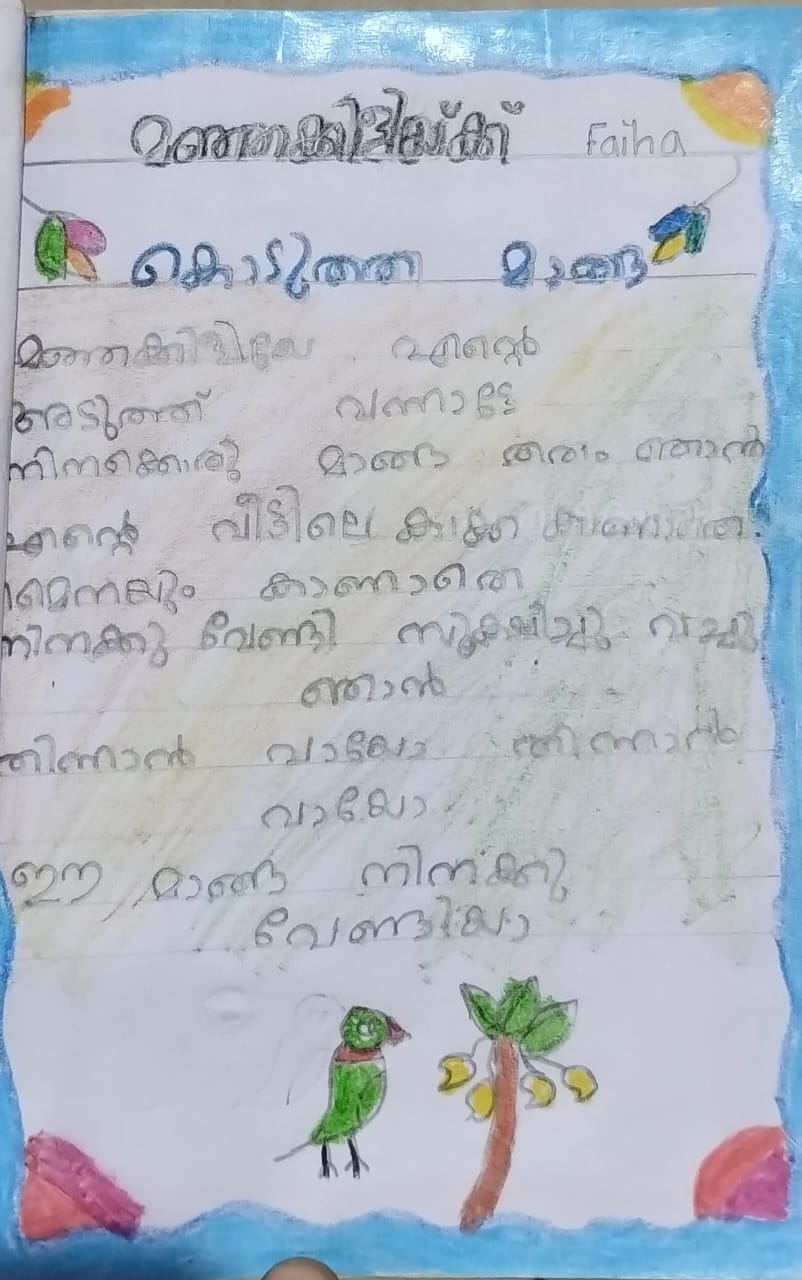 മഞ്ഞക്കിളിയ്ക്ക് Faiha
കൊടുത്ത മാങ്ങ
മഞ്ഞക്കിളിയേ എന്റെ
അടുത്ത് വന്നാട്ടേ
നിനക്കൊരു മാങ്ങ തരാം ഞാൻ
എന്റെ വീട്ടിലെ കാക്ക കാണാതെ
മൈനയും കാണാതെ
നിനക്കു വേണ്ടി സൂക്ഷിച്ചു വച്ചു
ഞാൻ
തിന്നാൻ വായോ തിന്നാൻ
വായോ
ഈ മാങ്ങ നിനക്കു
വേണ്ടിയാ